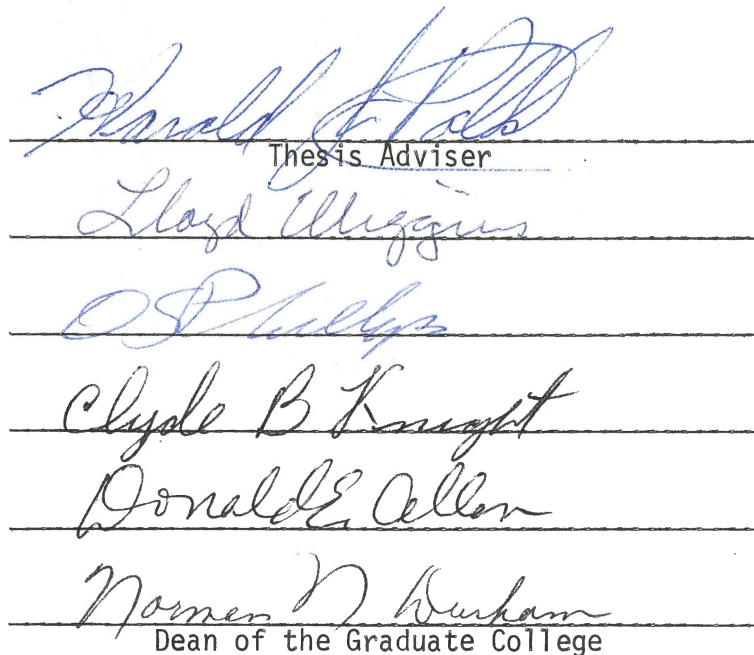 Harold
Thesis Adviser
Lloyd Wiggins
Phillips
Clyde B Knight
Donald E. Allen
Norman N Durham
Dean of the Graduate College